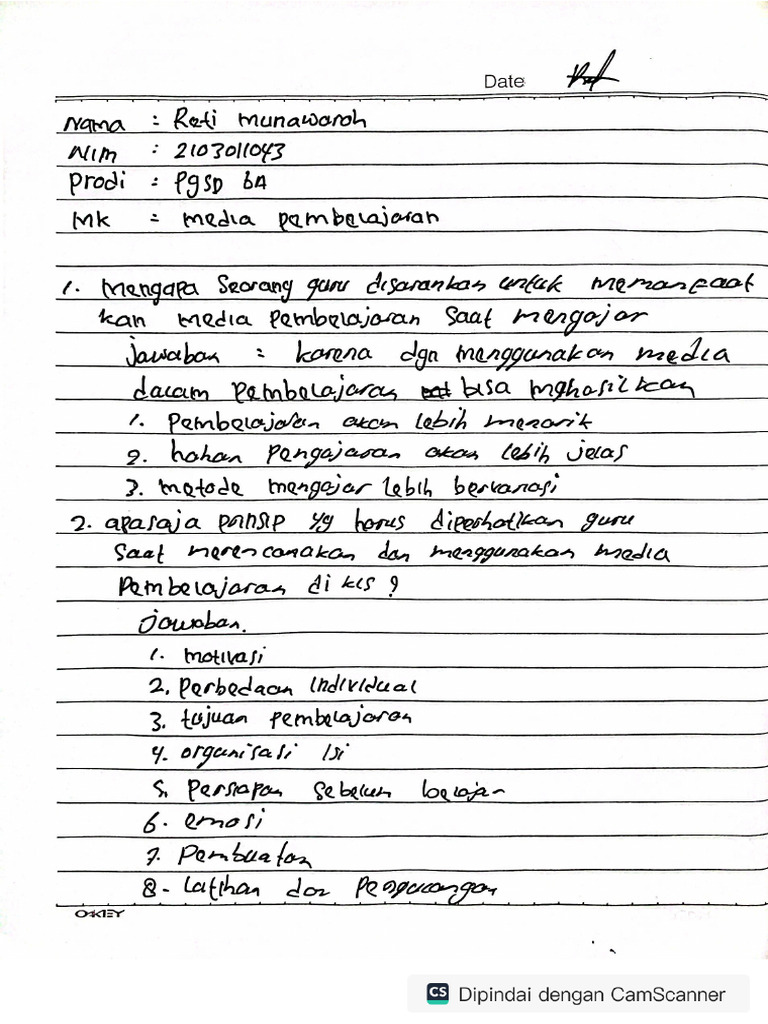 Date
Nama : Reti munawaroh
Nim : 2103011043
Prodi : PgSD 6A
Mk = media pembelajaran
1. Mengapa Seorang guru disarankan untuk memanfaat
kan media pembelajaran saat mengajar
jawaban = karena dgn menggunakan media
dalam pembelajaran bisa mghasilkan
1. Pembelajaran akan lebih menarik
2. bahan Pengajaran akan lebih jelas
3. metode mengajar lebih bervariasi
2. apasaja prinsip yg harus diperhatikan guru
Saat merencanakan dan menggunakan media
Pembelajaran di kls ?
jawaban.
1. motivasi
2. perbedaan individual
3. tujuan pembelajaran
4. organisasi isi
5. Persiapan sebelum belajar
6. emosi
7. Pembuatan
8. Latihan dan Pengulangan
OKEY
CS Dipindai dengan CamScanner